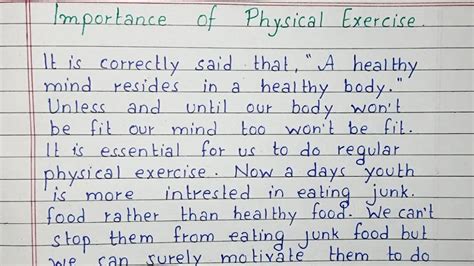 Importance of Physical Exercise.
It is correctly said that, "A healthy
mind resides in a healthy body."
Unless and until our body won't
be fit our mind too won't be fit.
It is essential for us to do regular
physical exercise. Now a days youth
is more intrested in eating junk.
food rather than healthy food. We can't
stop them from eating junk food but
we can surely motivate them to do